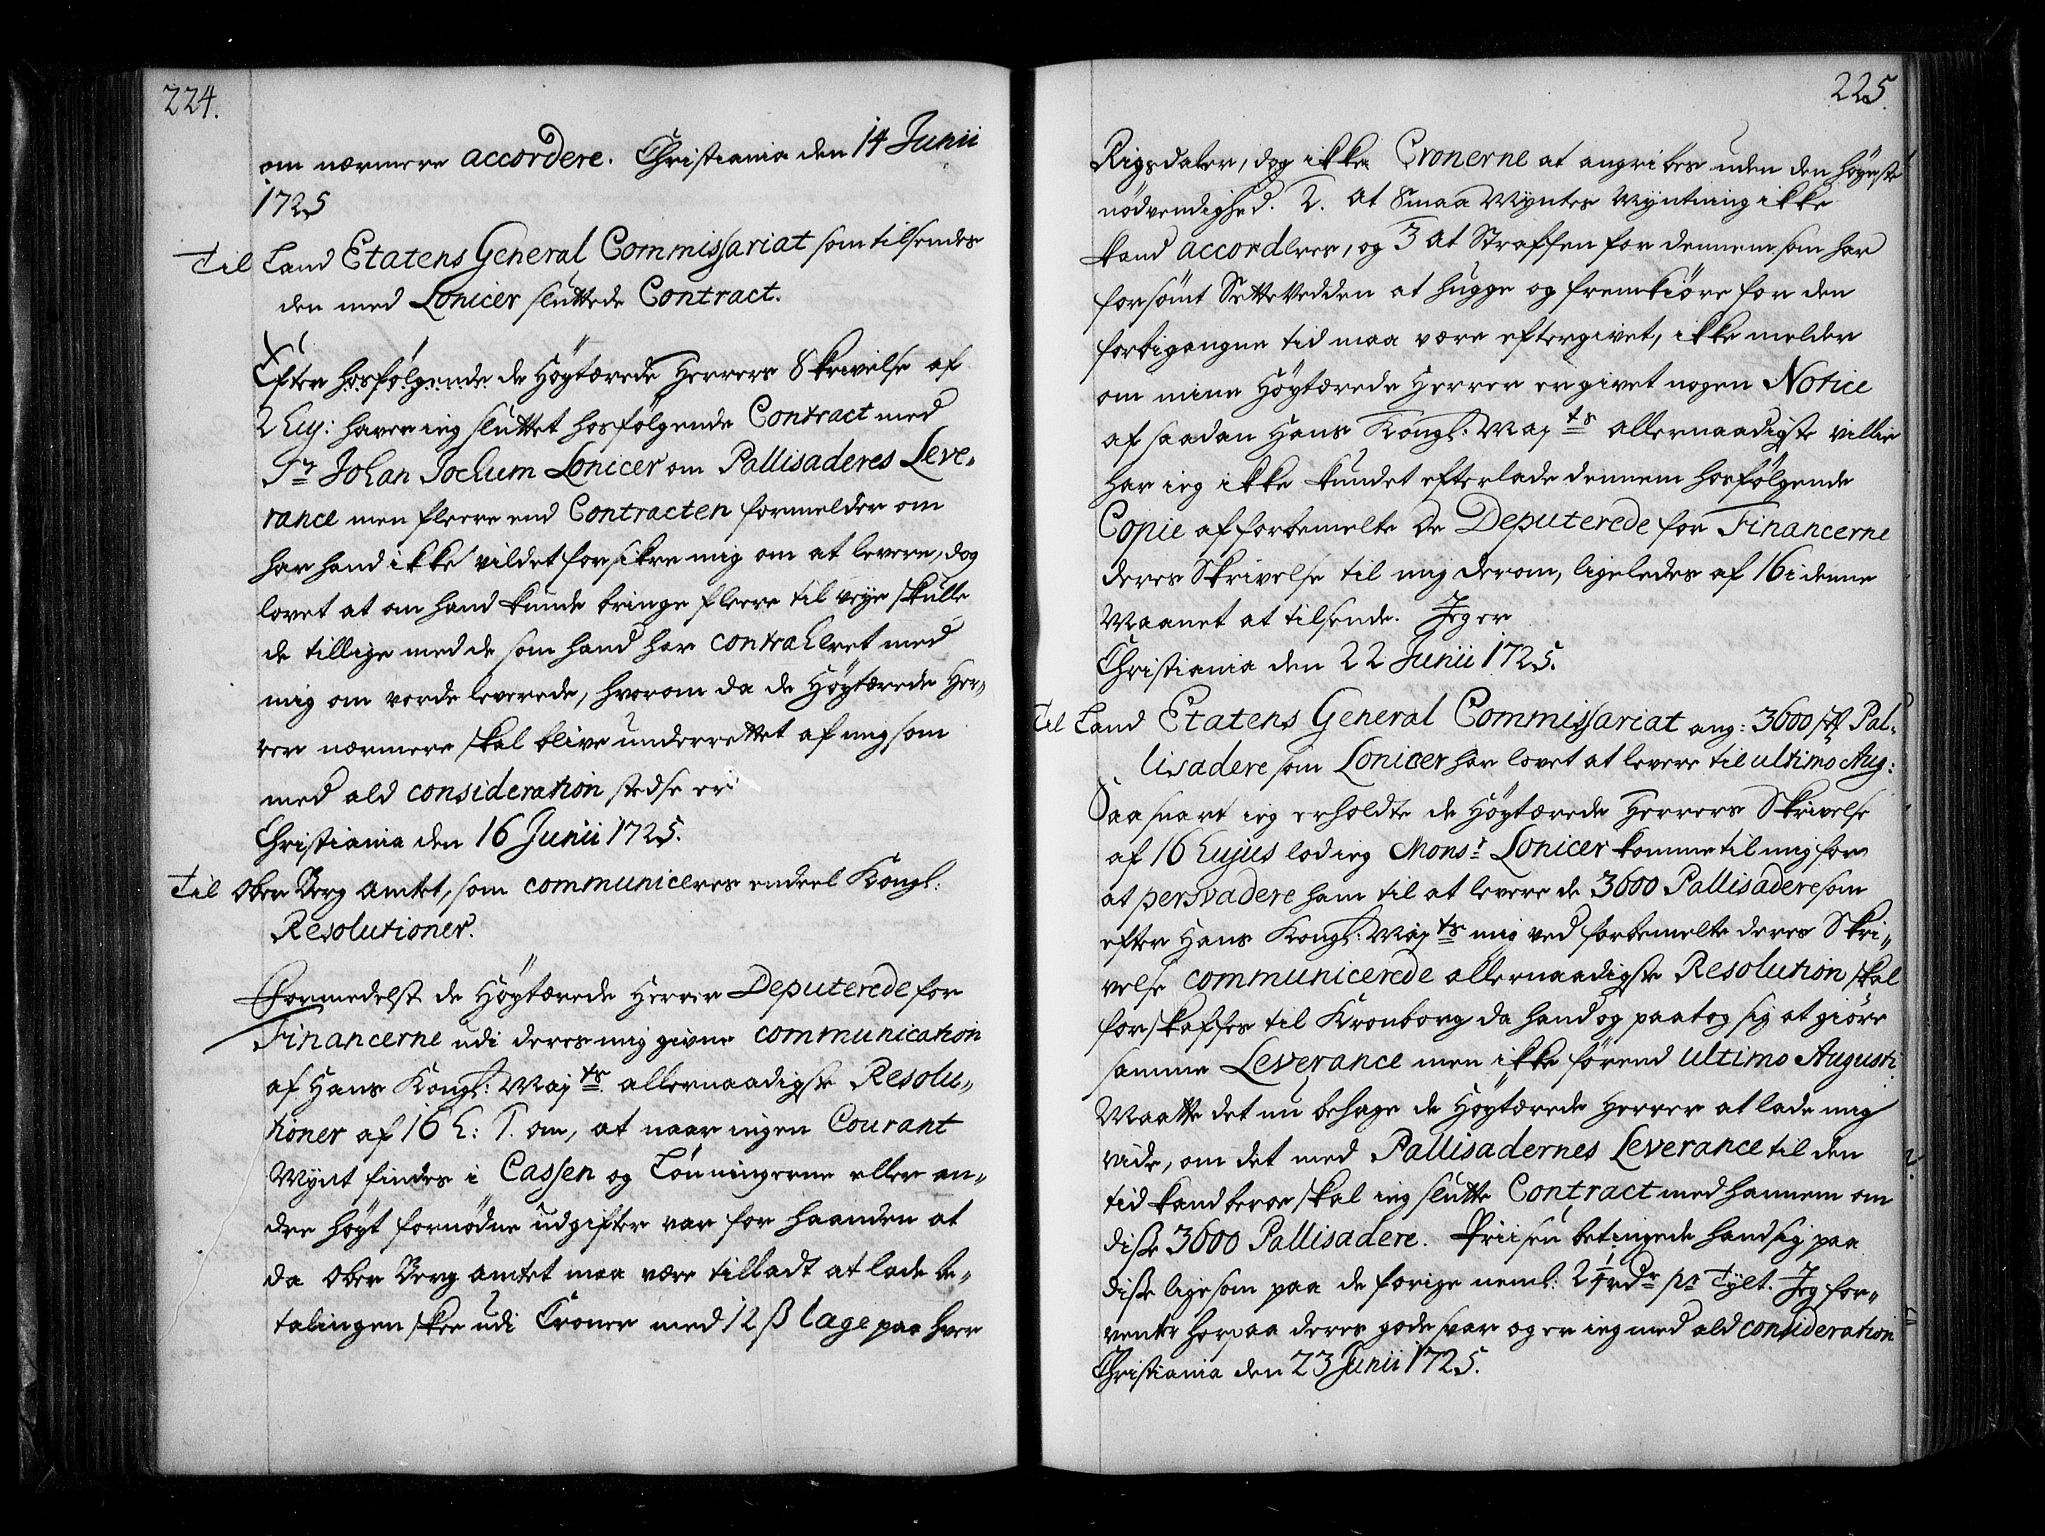 224.
om nærmere accordere. Christiania den 14 Junii
1725
Til Land Etatens General Commissariat som tilsendes
den med Lonicer sluttede Contract.
Efter hosfølgende de Høytærede Herrers Skrivelse af
2 huj: haver ieg sluttet hosfølgende Contract med
Sr Johan Jochum Lonicer om Pallisaderes Leve-
rance men fleere end Contracten formelder om
har hand ikke vildet forsikre mig om at levere, dog
lovet at om hand kunde bringe fleere til veye skulle
de tillige med de som hand har contraheret med
mig om vorde leverede, hvorom da de Høytærede Her-
rer nærmere skal blive underrettet af mig som
med ald consideration stedse er
Christiania den 16 Junii 1725.
Til Ober Berg Amtet, som communiceres endeel Kongl:
Resolutioner.
Formedelst de Høytærede Herrer Deputerede for
Financerne udi deres mig givne communication
af Hans Kongl: Maj ts allernaadigste Resolu-
tioner af 16 h: T. om, at naar ingen Courant
Mynt findes i Cassen og Lønningerne eller an-
dre høyt fornødne udgifter var for haanden at
da Ober Berg Amtet maa være tilladt at lade be-
talingen skee udi Croner med 12 ß lage paa hver
225.
Rigsdaler, dog ikke Cronerne at angribes uden den høyeste
nødvendighed. 2. At Smaa Myntes Myntning ikke
kand accorderes, og 3 at Straffen for dennem som har
forsømt SetteVedden at hugge og fremkiøre for den
forbigangne tid maa være eftergivet, ikke melder
om mine Høytærede Herrer er givet nogen Notice
af saadan Hans Kongl: Maj ts allernaadigste villie
har ieg ikke kundet efterlade dennem hosfølgende
Copie af forbemelte De Deputerede for Financerne
deres Skrivelse til mig derom, ligeledes af 16 i denne
Maanet at tilsende. Jeg er
Christiania den 22 Junii 1725.
Til Land Etatens General Commissariat ang: 3600 st Pal-
lisadere som Lonicer har lovet at levere til ultimo Aug:
Saa snart ieg erholdte de Høytærede Herrers Skrivelse
af 16 hujus lod ieg Monsr Lonicer komme til mig for
at persvadere ham til at levere de 3600 Pallisadere som
efter Hans Kongl: Maj ts mig ved forbemelte deres Skri-
velse communicerede allernaadigste Resolution skal
forskaffes til Kronborg da hand og paatog sig at giøre
samme Leverance men ikke førend ultimo Augusti.
Maatte det nu behage de Høytærede Herrer at lade mig
vide, om det med Pallisadernes Leverance til den
tid kand beroe skal ieg slutte Contract med hannem om
disse 3600 Pallisadere. Priisen betingede hand sig paa
disse ligesom paa de forige neml: 2 1/4 rdr pr Tylt. Jeg for-
venter herpaa deres gode svar og er ieg med ald consideration
Christiania den 23 Junii 1725.